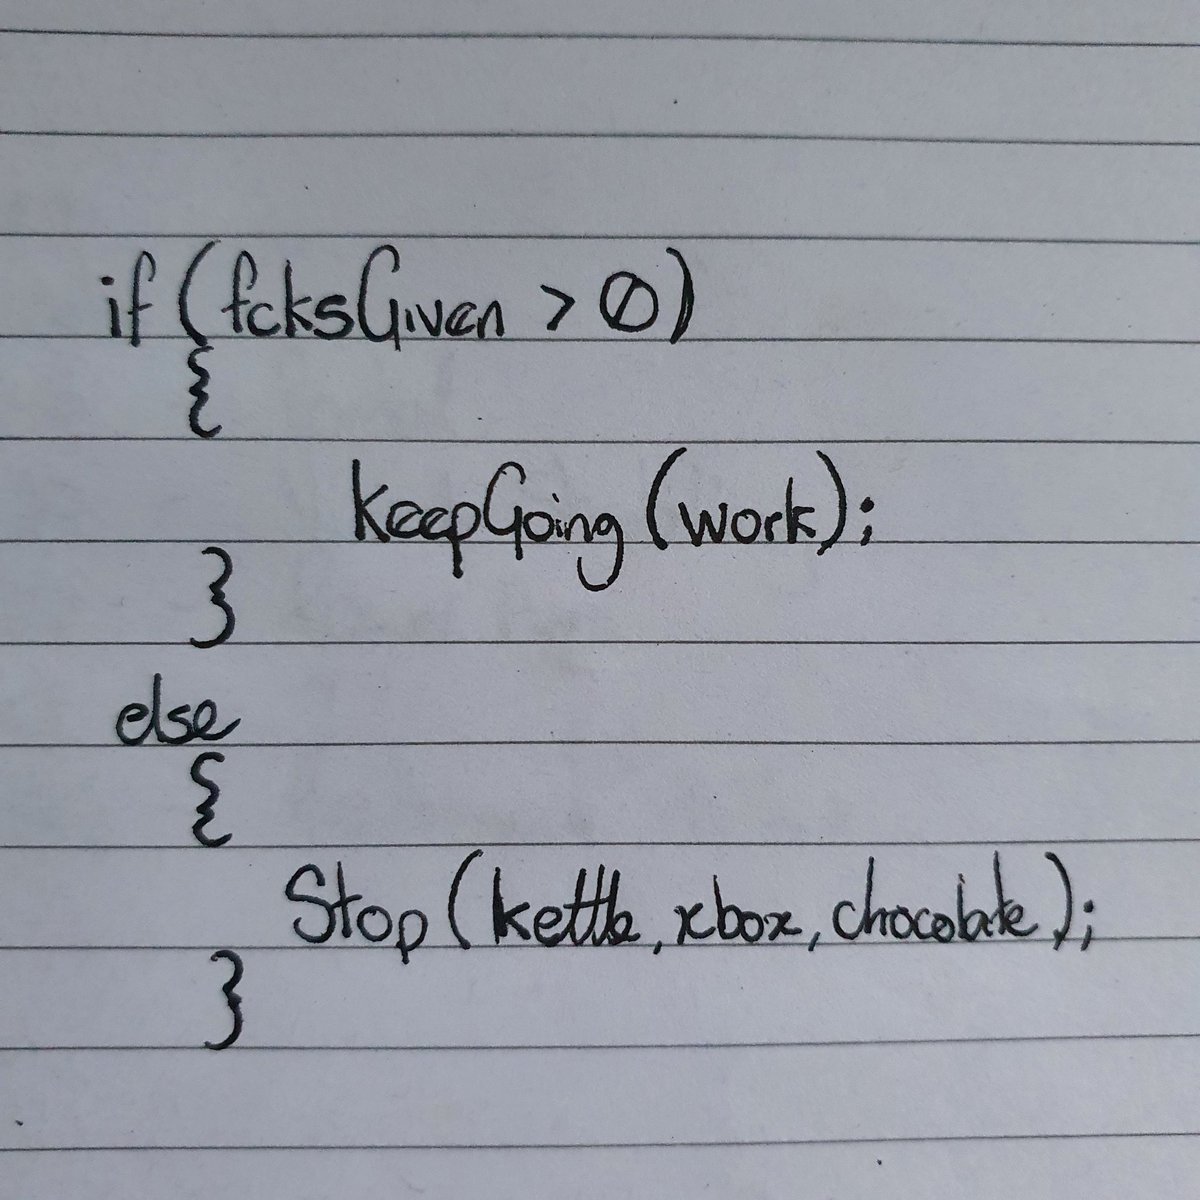 if (fcksGiven > 0)
{
keepGoing (work);
}
else
{
Stop (kettle, xbox, chocolate);
}